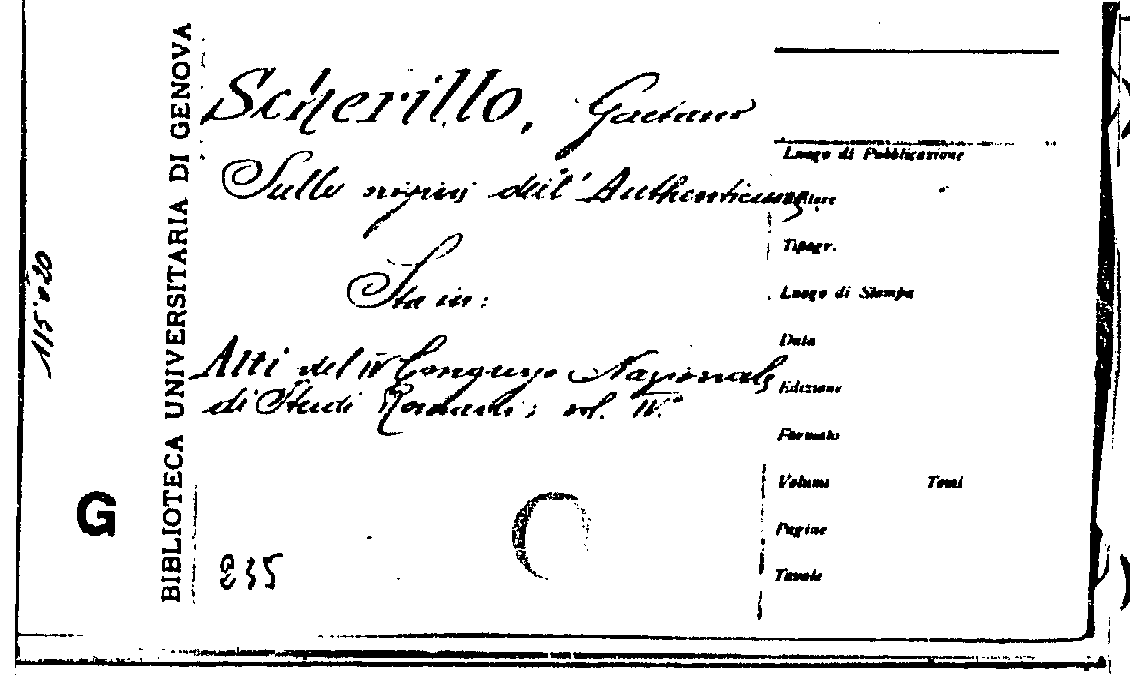 BIBLIOTECA UNIVERSITARIA DI GENOVA
G
Scherillo, Gaetano
Sulle origini dell'Authenticum.
Sta in:
Atti del IV Congresso Nazionale
di Studi Romani, vol. IV.°
235
Luogo di Pubblicazione
Editore
Tipogr.
Luogo di Stampa
Data
Edizione
Formato
Volume Tomi
Pagine
Tavole